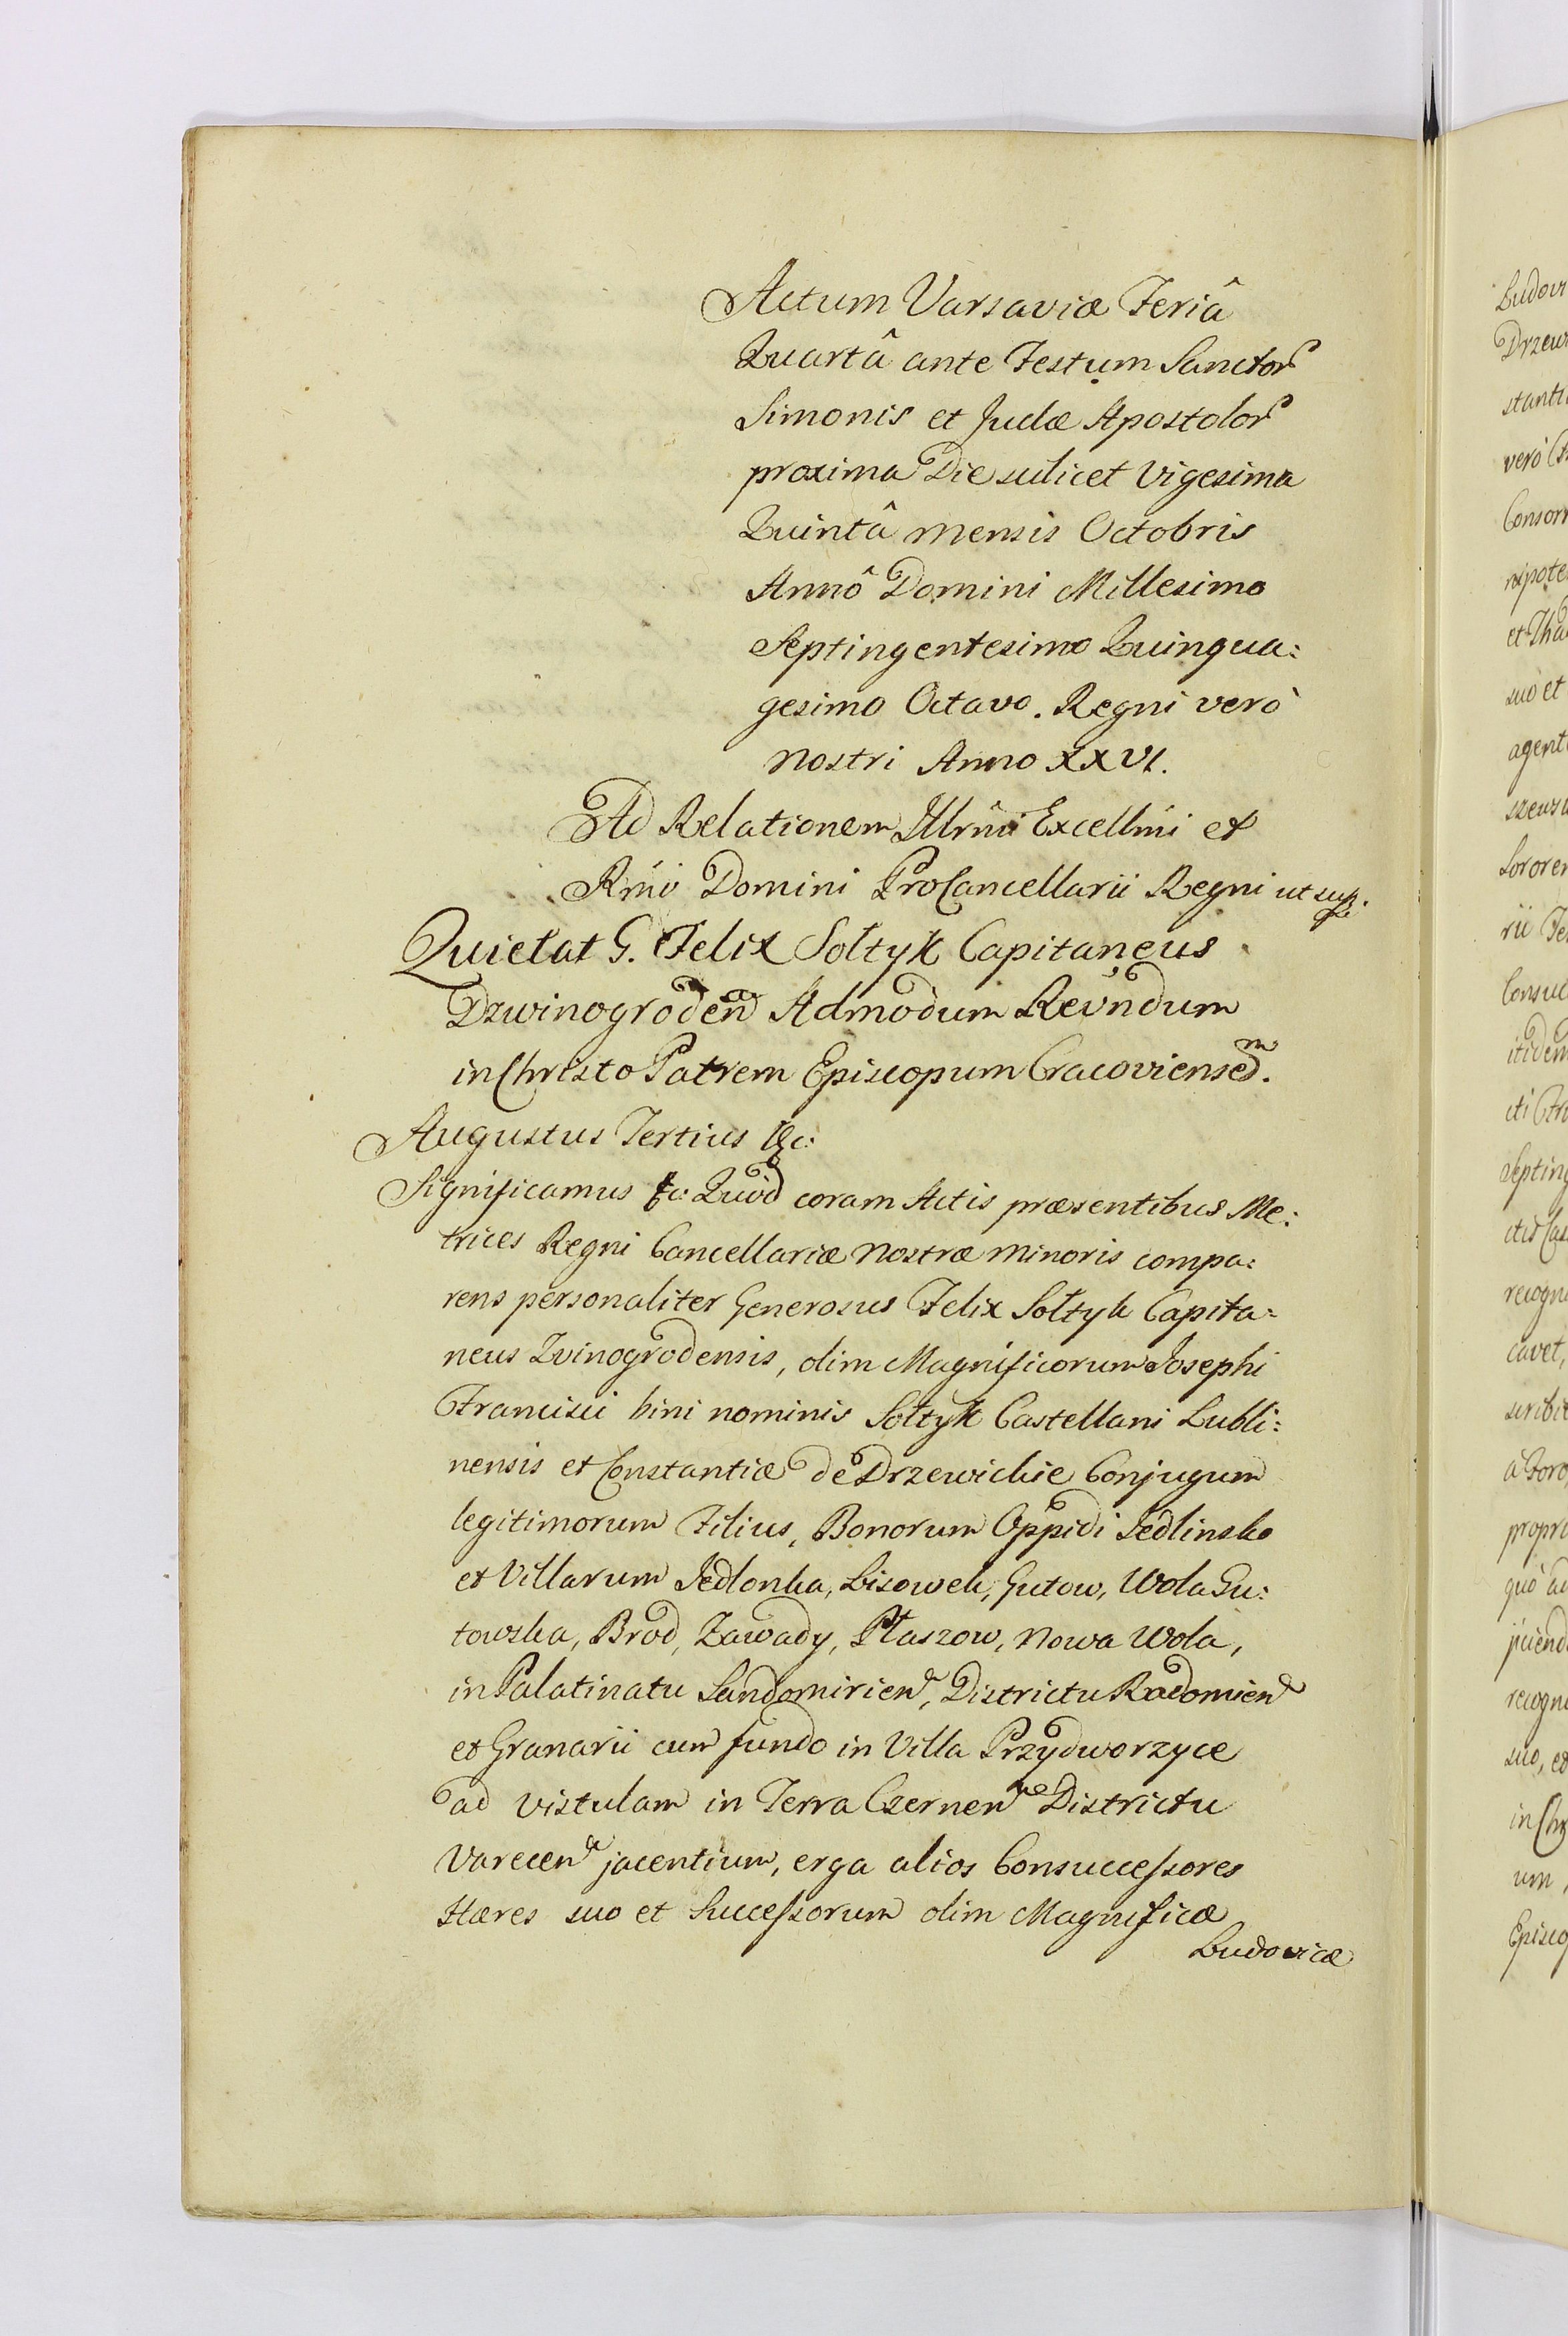 Actum Varsaviæ Feriâ
Quartâ ante Festum Sanctor
Simonis et Judæ Apostolor
proxima Die scilicet Vigesima
Quintâ mensis Octobris
Annô Domini Millesimo
Septingentesimo Quinqua:
gesimo Octavo. Regni verò
nostri Anno XXVI.
Ad Relationem Illrmi Excellmi et
Rmi Domini ProCancellarii Regni ut sup.
Quietat G. Felix Sołtyk Capitaneus
Dzwinogroden Admodum Revndum
in Christo Patrem Episcopum Cracoviensem.
Augustus Tertius &c:
Significamus &c: Quod coram Actis præsentibus Me:
trices Regni Cancellariæ nostræ minoris compa:
rens personaliter Generosus Felix Sołtyk Capita=
neus Zvinogrodensis, olim Magnificorum Josephi
Francisci bini nominis Sołtyk Castellani Lubli:
nensis et Constantiæ de Drzewickie Conjugum
legitimorum Filius, Bonorum Oppidi Jedlinsko
et Villarum Jedlonka, Lisowek, Gutow, Wola Gu:
towska, Brod, Zawady, Płaszow, Nowa Wola,
in Palatinatu Sandomirien, Districtu Radomien
et Granarii cum fundo in Villa Przydworzyce
ad vistulam in Terra Czernen Districtu
Varecen jacentium, erga alios Consuccessores
Hæres suo et Successorum olim Magnificæ
Ludovicæ
Ludovi
Drzew
stanti
verò
Consor
nepote
et Tha
suo et
agent
szews
Soror
rii
Consuc
itidem
cti
Septing
ctis Cas
recogn
cavet,
scribit
à
propri
quò ad
jiciend
recogn
suo, et
in Chr
um,
Episco